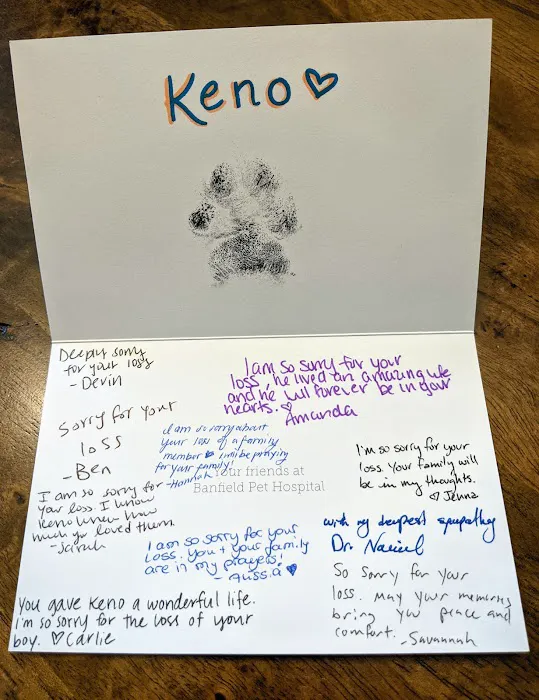 Keno ♡
Deeply sorry
for your loss
- Devin
I am so sorry for your
loss, he lived an amazing life
and he will forever be in your
hearts. ♡
Amanda
Sorry for your
loss
- Ben
I am so sorry about
your loss of a family
member ♥ I will be praying
for your family!
- Hannah
Your friends at
Banfield Pet Hospital
I'm so sorry for your
loss. Your family will
be in my thoughts.
♡ Jenna
I am so sorry for
your loss. I know
Keno knew how
much you loved them.
- Sarah
I am so sorry for your
loss. you + your family
are in my prayers!
- Alissa ♥
with my deepest sympathy
Dr.
So sorry for your
loss. May your memories
bring you peace and
comfort. - Savannah
You gave Keno a wonderful life.
I'm so sorry for the loss of your
boy. ♡ Carlie